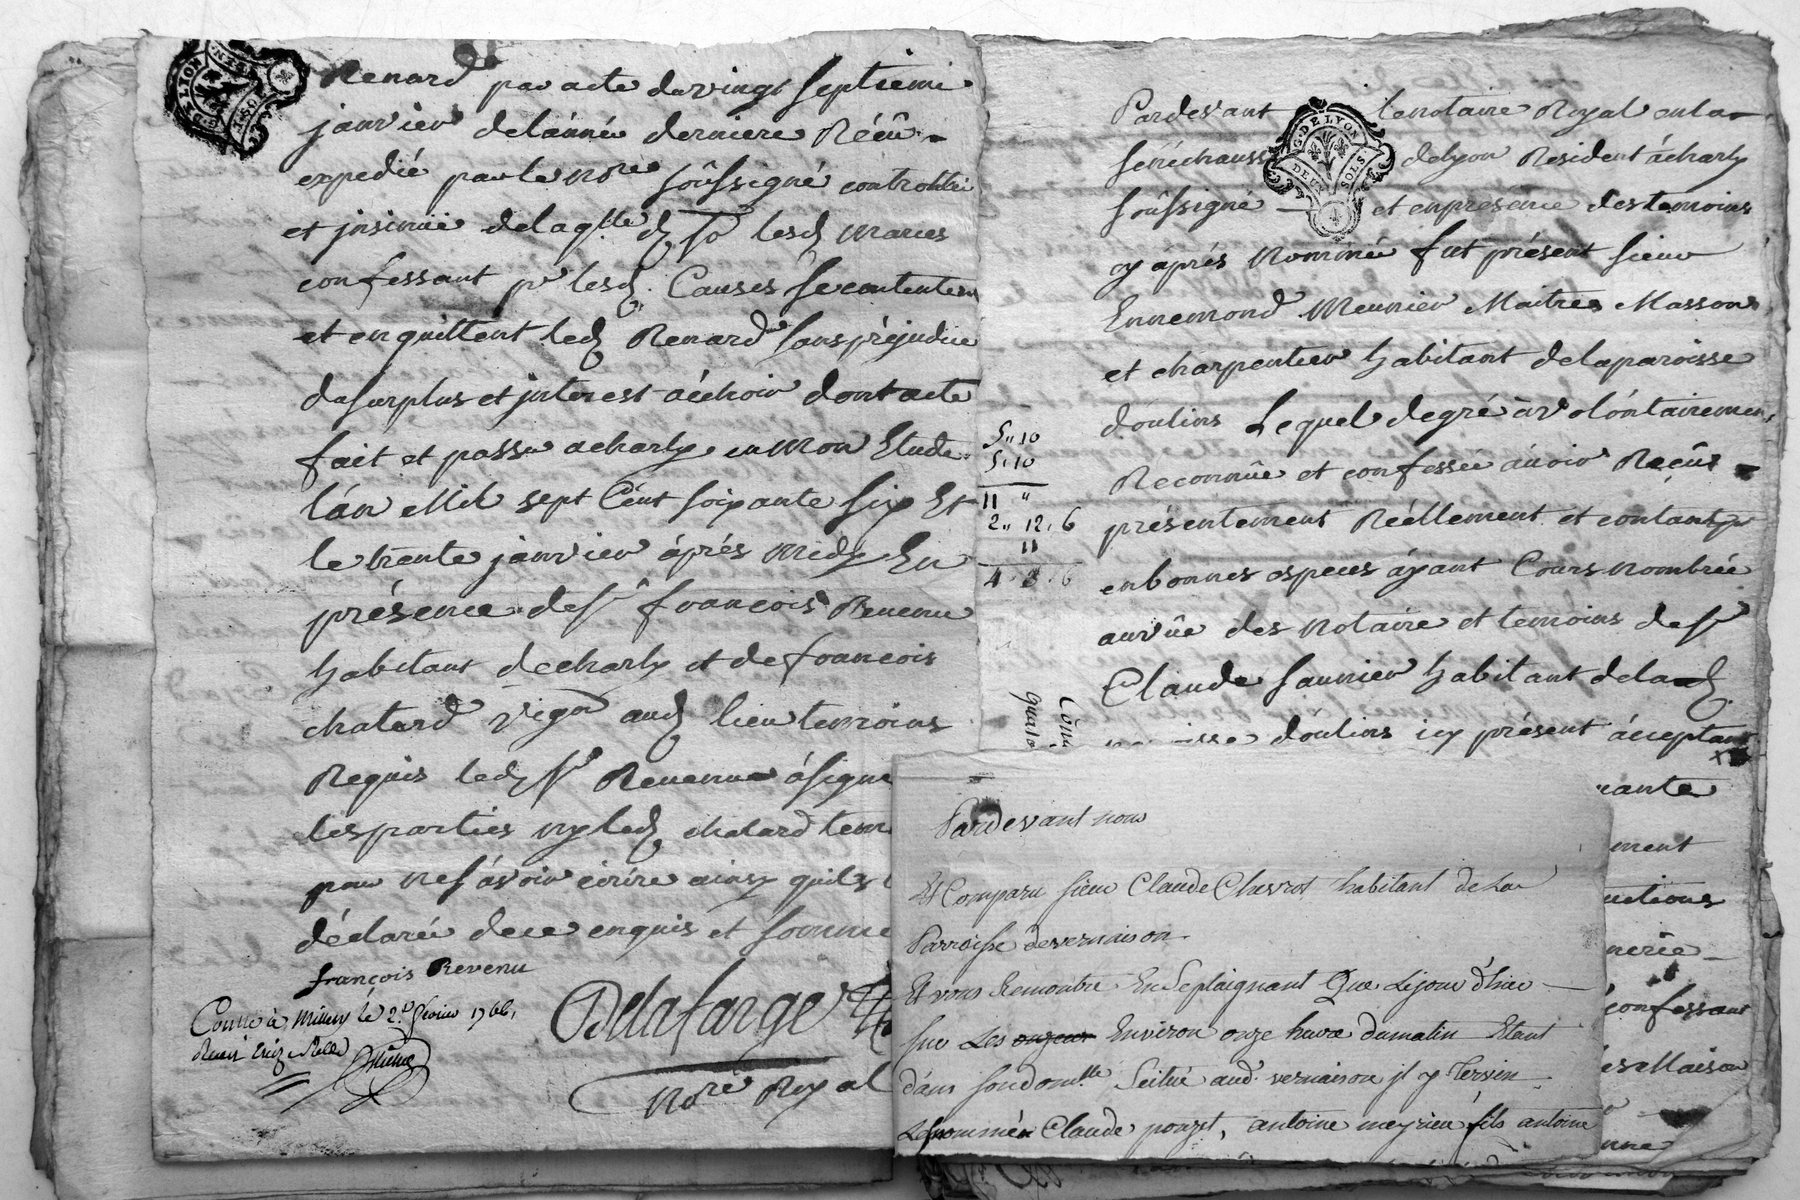 Renard par acte du vingt septiemi
janvier delánnée derniere Réçû
expedié par le nore soûssigné controllé
et jnsinué delaqlle d. Sr lesd. Maries
confessant pr lesd. Causes se contentem
et enquittent led. Renard sans préjudice
du surplus et jnterest aéchoir dont acte
fait et passé acharly en Mon Etude
lán Mil sept Cént soixante six Et
le trente janvier áprés midy En
présence de Sr françois Revenu
habitant decharly et de françois
chatard Vigon aud. lieu temoins
Requis led. Sr Revenu ásigné
les parties ny led. chatard tem
pour ne sávoir écrire ainsy quils
déclarée dece enquis et sommé
françois Revenu
Conllé à Millery le 2.d fevrier 1766,
Delafarge
Nore Royal
G. DE LYON
Pardevant le notaire Royal en la
sénéchauss delyon Resident ácharly
soûssigné et enprésence des temoins
cy áprés Nommé fut présent sieur
Ennemond Meunier Maitres Masson
et charpentier habitant delaparoisse
doulins Lequel degré á volóntairement
Reconnûe et confessée ávoir Réçûe
présentement Réellement et contant pr
enbonnes especes áyant Cours nombrée
aurûe des Notaire et temoins de Sr
Claude saunier habitant delad.
paroisse doulins icy présent áceptant
G. DE LYON
DEUX SOLS
5,, 10
5,, 10
11 "
2,, 12, 6
11
4, 3, 6
nante
ment
uctions
nerée
confessant
es Maison
nne
Pardevant nous
Et Comparu sieur Claude Chevrot habitant de La
Parroisse devernaison
Et vous Remontre En Seplaignant Que Lejour d'hier
sur Les onzeur Environ onze heure dumatin Etant
dans sondomlle Scitué aud. vernaison jl y Tervin
Lesnommén Claude pouzet, antoine meyrieu fils antoine